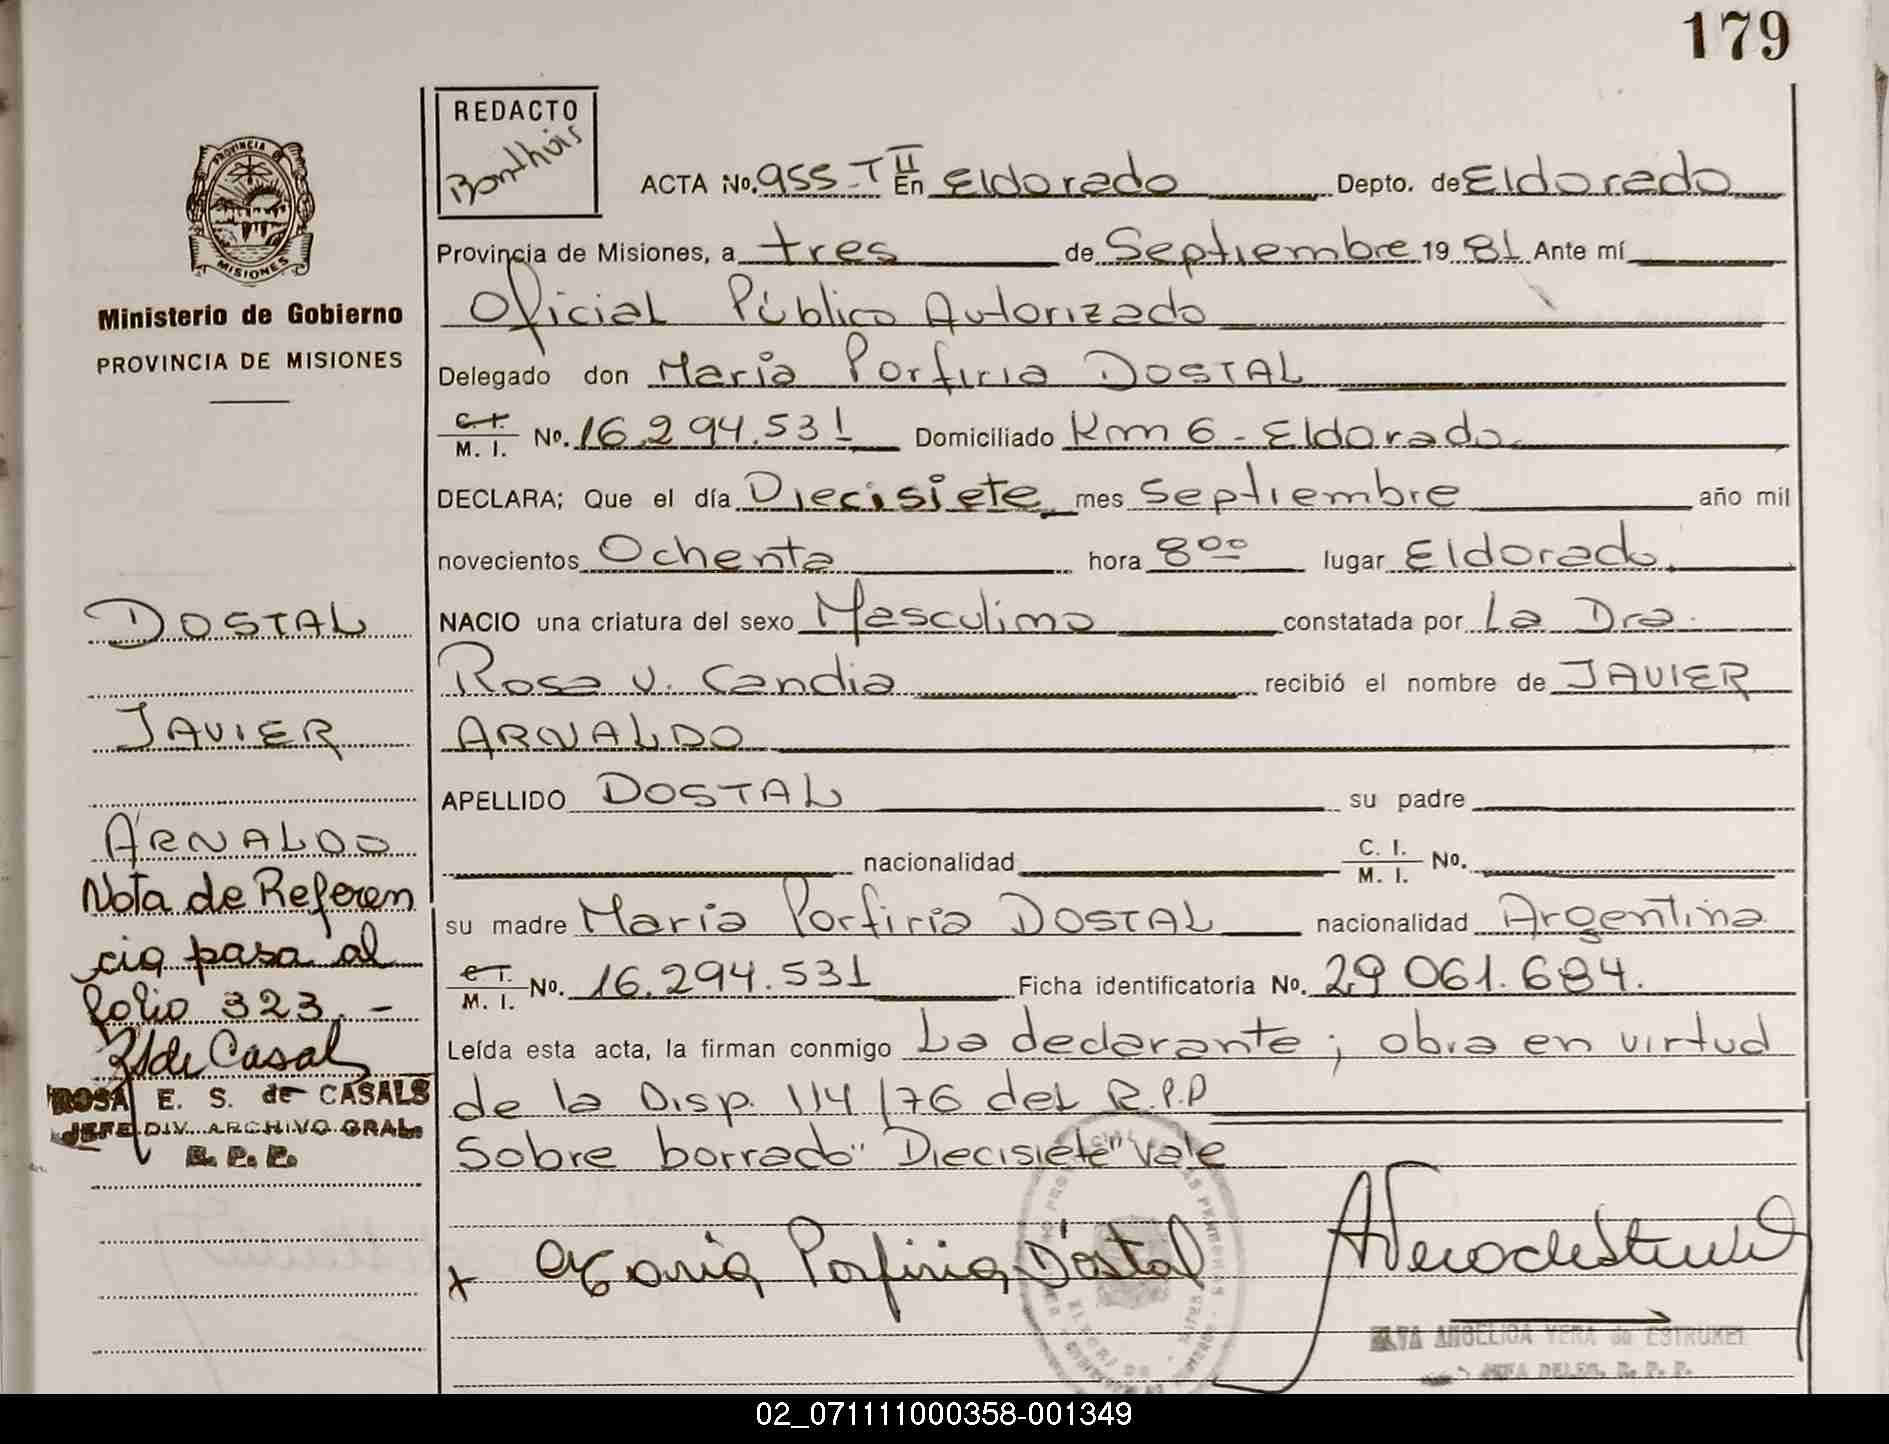 179
REDACTO
Bonthuis
PROVINCIA
MISIONES
Ministerio de Gobierno
PROVINCIA DE MISIONES
ACTA No. 955-T II En Eldorado Depto. de Eldorado
Provincia de Misiones, a tres de Septiembre 19 81 Ante mí
Oficial Público Autorizado
Delegado don Maria Porfiria DOSTAL
C. I. M. I. No. 16.294.531 Domiciliado Km 6 - Eldorado
DECLARA; Que el día Diecisiete mes Septiembre año mil
novecientos Ochenta hora 8 00 lugar Eldorado
NACIO una criatura del sexo Masculino constatada por La Dra.
Rosa V. Candia recibió el nombre de JAVIER
ARNALDO
APELLIDO DOSTAL su padre
nacionalidad C. I. M. I. No.
su madre Maria Porfiria DOSTAL nacionalidad Argentina
C. I. M. I. No. 16.294.531 Ficha identificatoria No. 29 061.684.
Leída esta acta, la firman conmigo La declarante; obra en virtud
de la Disp. 114/76 del R.P.P
Sobre borrado "Diecisiete" Vale
x Maria Porfiria Dostal
ELVA ANGELICA VERA de ESTRUKEL
JEFA DELEG. R. P. P.
DOSTAL
JAVIER
ARNALDO
Nota de Referen
cia pasa al
folio 323. -
R S de Casals
ROSA E. S. de CASALS
JEFE DIV. ARCHIVO GRAL.
R. P. P.
02_071111000358-001349